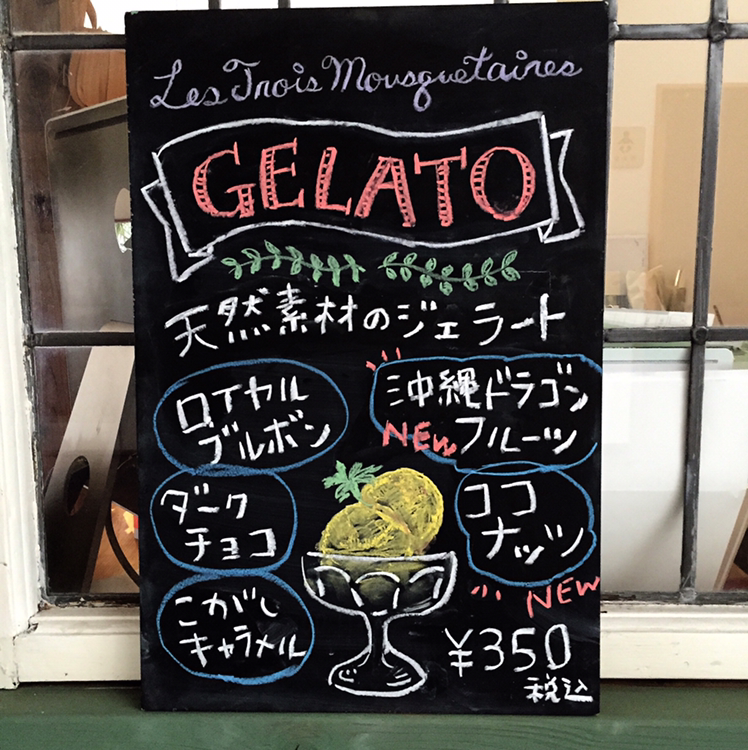 Les Trois Mousquetaires
GELATO
天然素材のジェラート
ロイヤル
ブルボン
沖縄ドラゴン
NEW フルーツ
ダーク
チョコ
ココ
ナッツ
NEW
こがし
キャラメル
¥350
税込